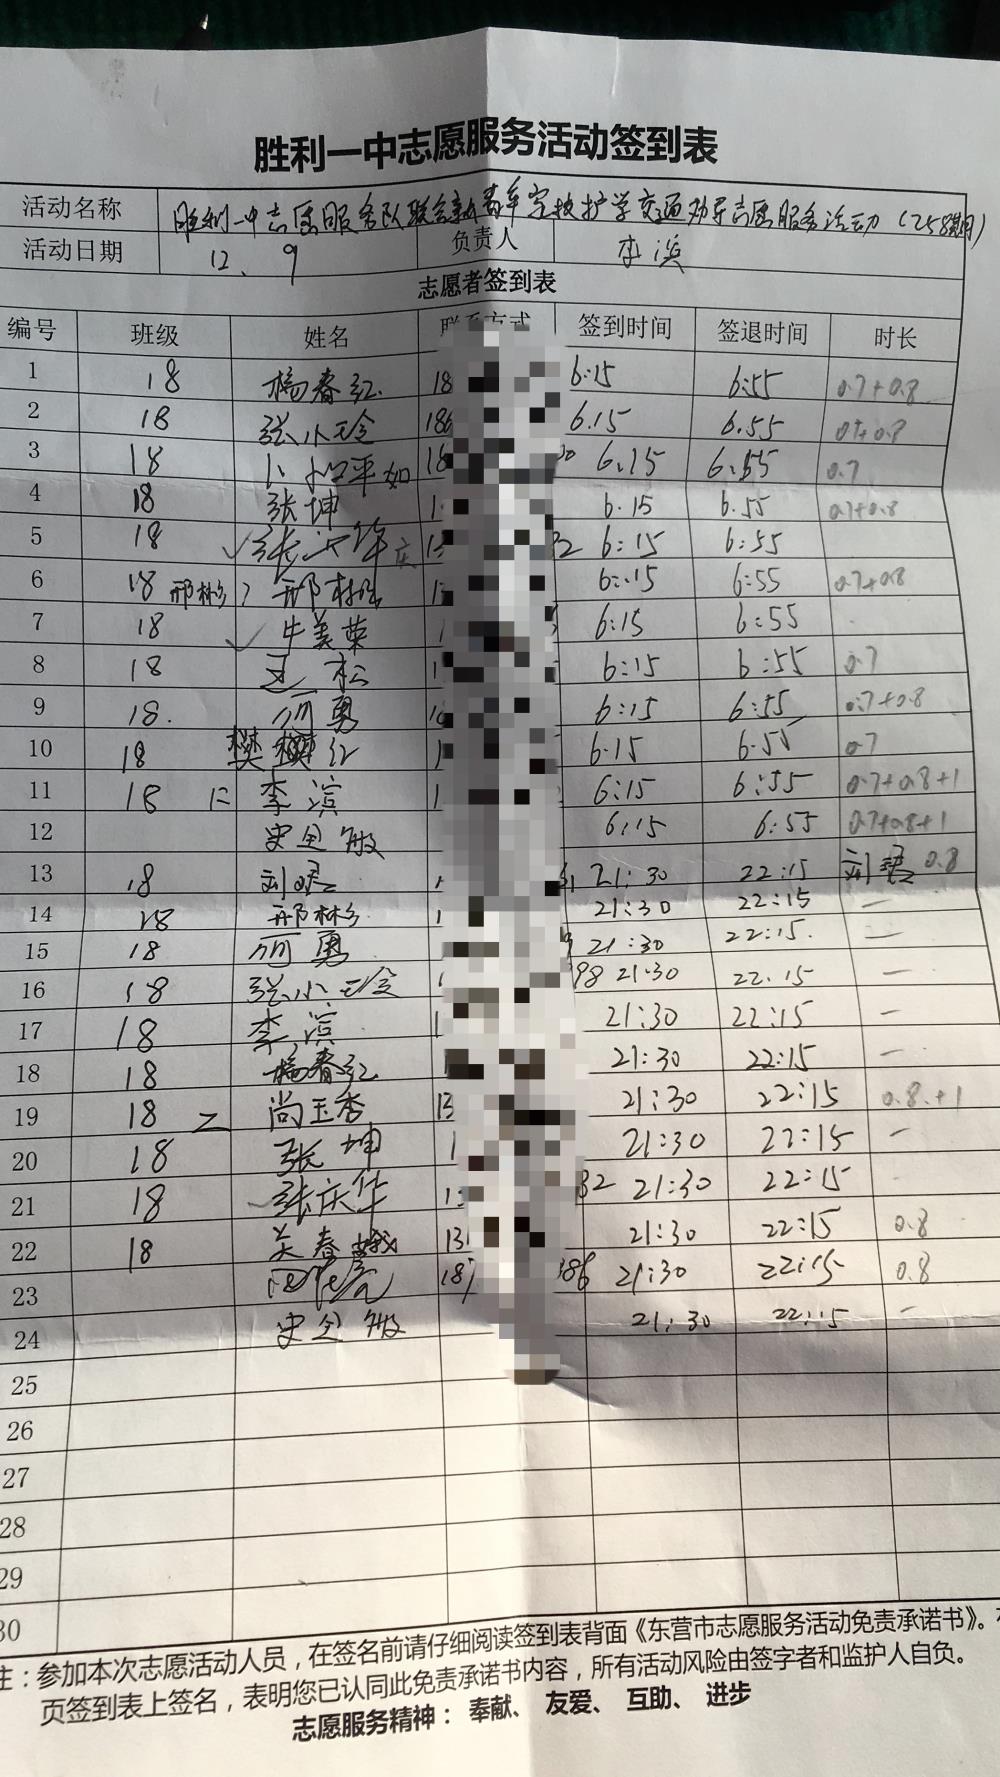 胜利一中志愿服务活动签到表
活动名称 胜利一中志愿服务队联合新青年 护学交通劝导志愿服务活动(258期)
活动日期 12、9 负责人 李滨
志愿者签到表
编号 班级 姓名 联系方式 签到时间 签退时间 时长
1 18 杨春红 18 6:15 6:55 0.7+0.8
2 18 张小玲 186 6.15 6.55 0.7+0.8
3 18 18 6.15 6:55 0.7
4 18 张坤 1 6.15 6.55 0.7+0.8
5 18 ✓张庆华 庆 13 32 6:15 6:55
6 18 邢彬乡 邢 6:15 6:55 0.7+0.8
7 18 ✓牛美荣 1 6:15 6:55
8 18 王松 1 6:15 6:55 0.7
9 18. 勇 6:15 6:55 0.7+0.8
10 18 樊 红 1 6.15 6.55 0.7
11 18 仁 李滨 1 6:15 6:55 0.7+0.8+1
12 史全敏 6:15 6:55 0.7+0.8+1
13 18 刘 21:30 22:15 刘 0.8
14 18 邢彬乡 1 21:30 22:15 —
15 18 勇 21:30 22:15. —
16 18 张小玲 1 98 21:30 22.15 —
17 18 李滨 1 21:30 22:15 —
18 18 杨春红 21:30 22:15 —
19 18 二 尚玉香 13 21:30 22:15 0.8.+1
20 18 张坤 1 21:30 22:15 —
21 18 ✓张庆华 13 32 21:30 22:15 -
22 18 关春娥 131 21:30 22:15 0.8
23 187 386 21:30 22:15 0.8
24 史全敏 21:30 22:15 —
25
26
27
28
29
30
注：参加本次志愿活动人员，在签名前请仔细阅读签到表背面《东营市志愿服务活动免责承诺书》。在
页签到表上签名，表明您已认同此免责承诺书内容，所有活动风险由签字者和监护人自负。
志愿服务精神：奉献、友爱、互助、进步